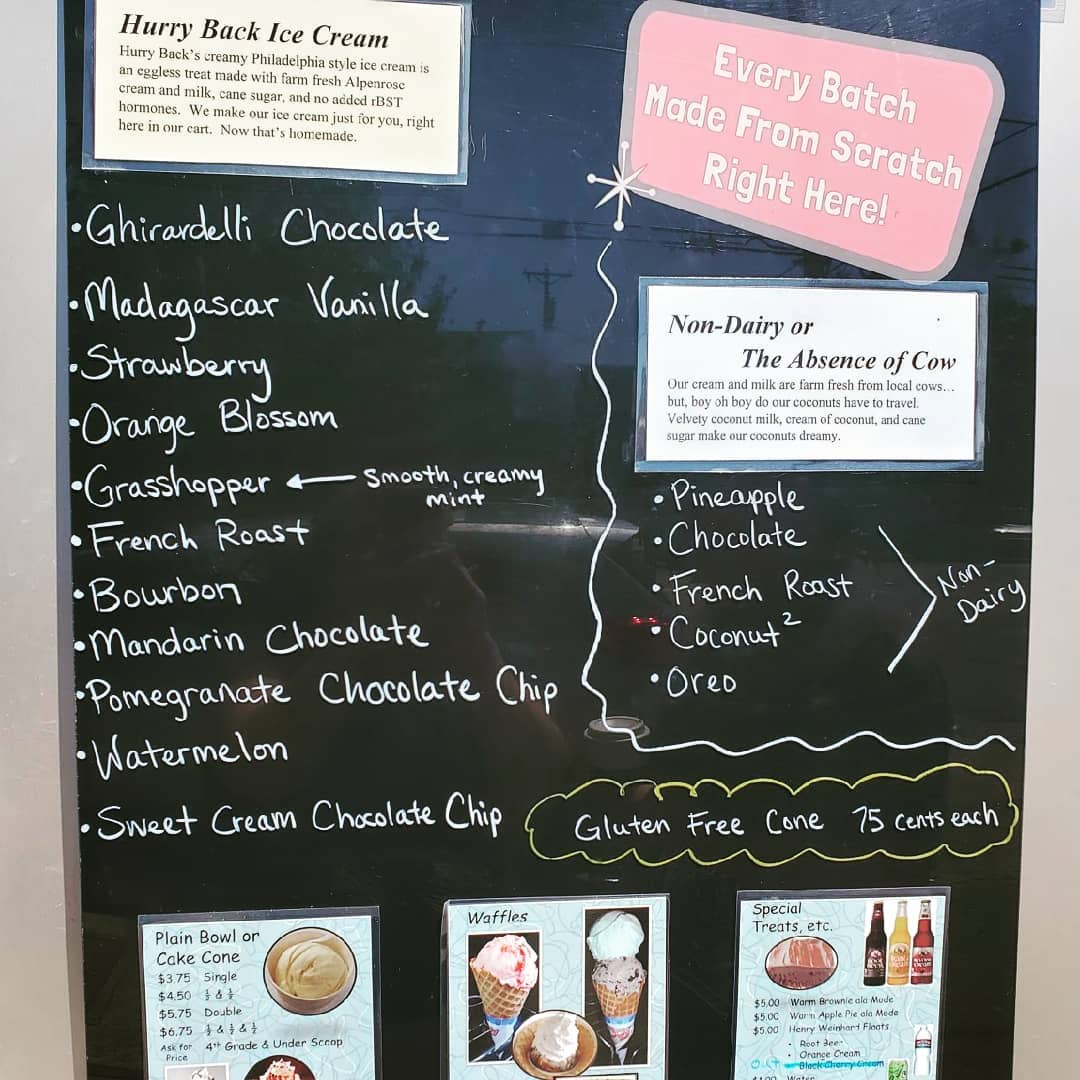 Hurry Back Ice Cream
Hurry Back's creamy Philadelphia style ice cream is
an eggless treat made with farm fresh Alpenrose
cream and milk, cane sugar, and no added rBST
hormones. We make our ice cream just for you, right
here in our cart. Now that's homemade.
Every Batch
Made From Scratch
Right Here!
•Ghirardelli Chocolate
•Madagascar Vanilla
•Strawberry
•Orange Blossom
•Grasshopper ← Smooth, creamy
mint
•French Roast
•Bourbon
•Mandarin Chocolate
•Pomegranate Chocolate Chip
•Watermelon
•Sweet Cream Chocolate Chip
Non-Dairy or
The Absence of Cow
Our cream and milk are farm fresh from local cows...
but, boy oh boy do our coconuts have to travel.
Velvety coconut milk, cream of coconut, and cane
sugar make our coconuts dreamy.
•Pineapple
•Chocolate
•French Roast
•Coconut²
•Oreo
Non-
Dairy
Gluten Free Cone 75 cents each
Plain Bowl or
Cake Cone
$3.75 Single
$4.50 ½ & ½
$5.75 Double
$6.75 ½ & ½ & ½
Ask for 4th Grade & Under Scoop
Price
Waffles
Special
Treats, etc.
$5.00 Warm Brownie ala Mode
$5.00 Warm Apple Pie ala Mode
$5.00 Henry Weinhard Floats
• Root Beer
• Orange Cream
Black Cherry Cream
$1.00 Water